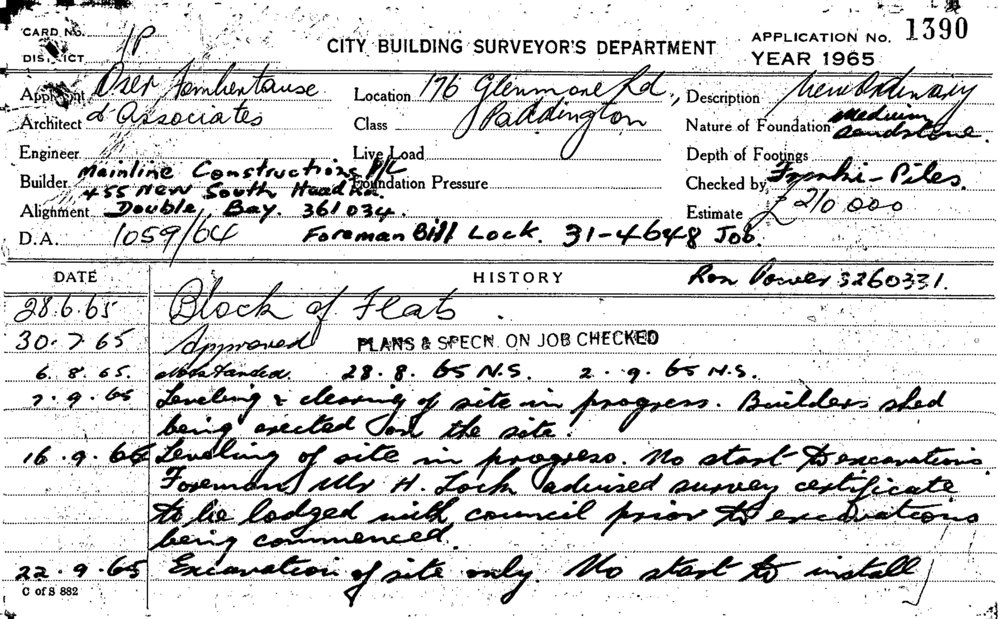 CARD No.
1P
CITY BUILDING SURVEYOR'S DEPARTMENT
APPLICATION No. 1390
DISTRICT
YEAR 1965
Applicant
Location 176 Glenmore Rd, Paddington
Description New Ordinary
Architect & Associates
Class
Nature of Foundation medium sandstone.
Engineer
Live Load
Depth of Footings
Builder Mainline Constructions P/L
455 New South Head Rd.
Foundation Pressure
Checked by Franki-Piles.
Alignment Double Bay. 361034.
Estimate £210000
D.A. 1059/64 Foreman Bill Lock. 31-4648 Job.
DATE HISTORY Ron Power 3260331.
28.6.65 Block of Flats.
30.7.65 Approved PLANS & SPECN. ON JOB CHECKED
6.8.65. Not Started. 28.8.65 N.S. 2.9.65 N.S.
7.9.65 Leveling & clearing of site in progress. Builders shed
being erected on the site.
16.9.65 Leveling of site in progress. No start to excavations
Foreman Mr H. Lock advised survey certificate
to be lodged with council prior to excavations
being commenced.
22.9.65 Excavation of site only. No start to install
C of S 882